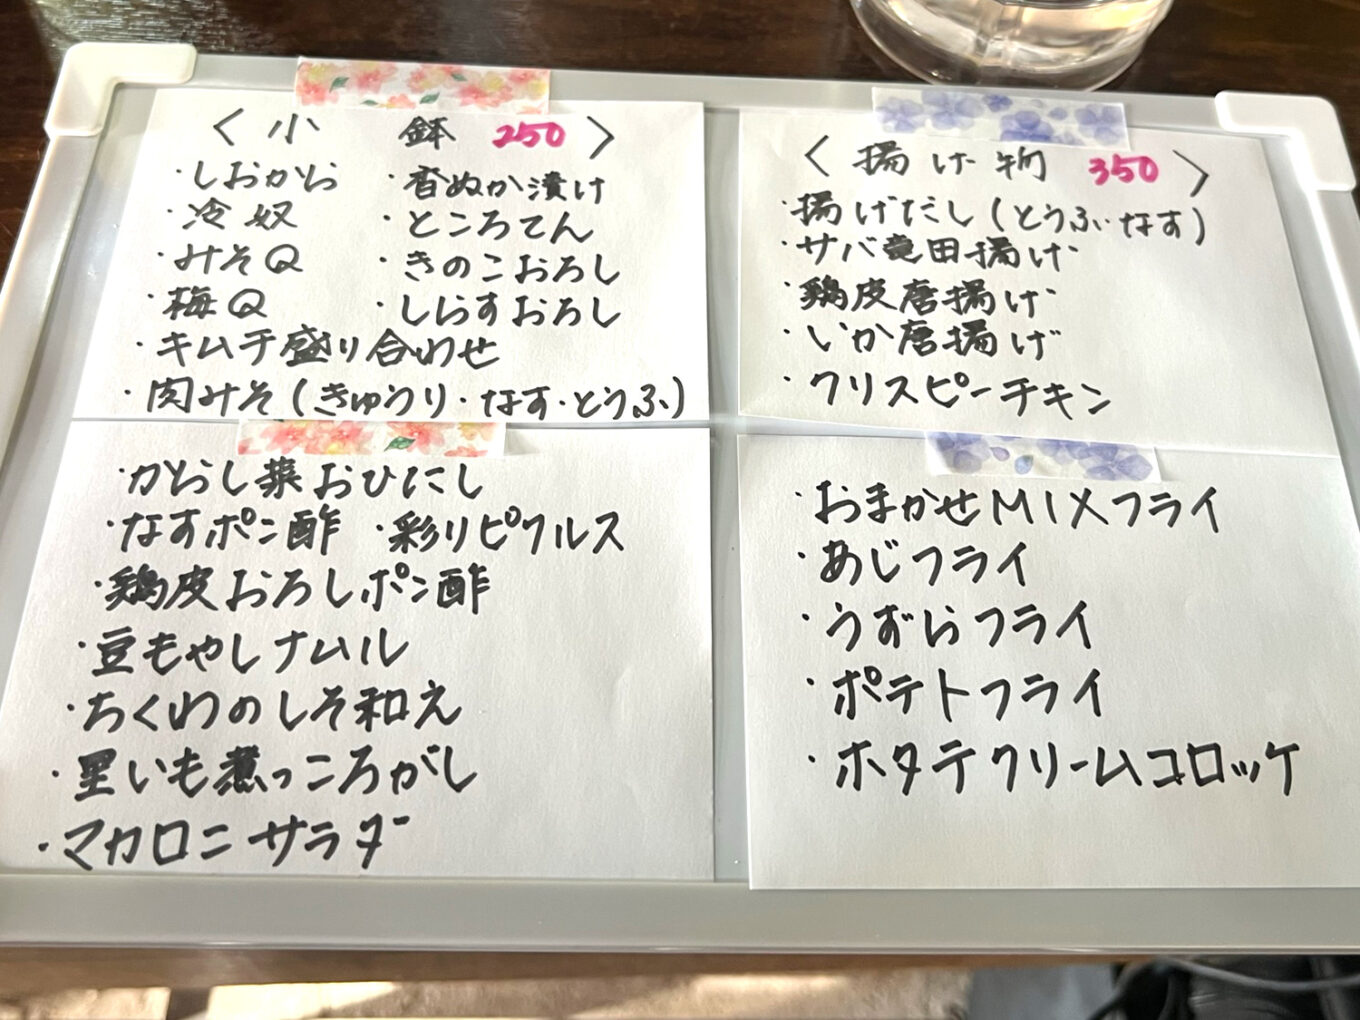 〈小鉢 250〉
・しおから ・香ぬか漬け
・冷奴 ・ところてん
・みそQ ・きのこおろし
・梅Q ・しらすおろし
・キムチ盛り合わせ
・肉みそ(きゅうり・なす・とうふ)
・からし菜おひにし
・なすポン酢 ・彩りピクルス
・鶏皮おろしポン酢
・豆もやしナムル
・ちくわのしそ和え
・里いも煮っころがし
・マカロニサラダ
〈揚げ物 350〉
・揚げだし(とうふ・なす)
・サバ竜田揚げ
・鶏皮唐揚げ
・いか唐揚げ
・クリスピーチキン
・おまかせMIXフライ
・あじフライ
・うずらフライ
・ポテトフライ
・ホタテクリームコロッケ